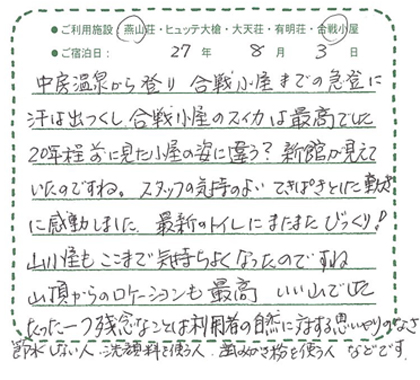 ●ご利用施設:燕山荘・ヒュッテ大槍・大天荘・有明荘・合戦小屋
●ご宿泊日: 27年 8月 3日
中房温泉から登り 合戦小屋までの急登に
汗は出つくし 合戦小屋のスイカは最高でした
20年程前に見た小屋の姿に違う? 新館が見えて
いたのですね。スタッフの気持のよい てきぱきとした動き
に感動しました 最新のトイレにまたまたびっくり!
山小屋もここまで気持ちよくなったのですね
山頂からのロケーションも最高 いい山でした
たった一つ残念なことは利用者の自然に対する思いやりのなさ
節水しない人、洗顔料を使う人、歯みがき粉を使う人 などです